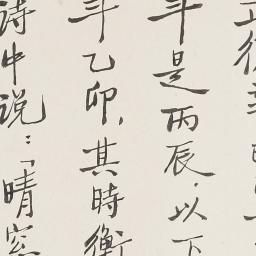 年是丙辰，以下
年乙卯，其時衡
诗中说：「晴窓